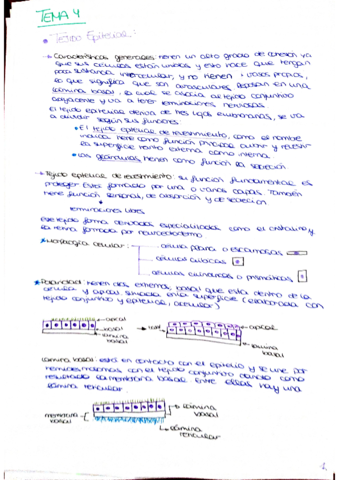 TEMA 4
Tejido Epitelial:
Características generales: tienen un alto grado de conexión ya
que sus células están unidas y eso hace que tengan
poca sustancia intercelular, y no tienen vasos propios,
lo que significa que son avasculares. Reposan en una
lámina basal, la cual se asocia al tejido conjuntivo
adyacente y va a tener terminaciones nerviosas.
El tejido epitelial deriva de tres hojas embrionarias, se va
a dividir según sus funciones
El tejido epitelial de revestimiento, como el nombre
indica tiene como función principal cubrir y revestir
la superficie tanto externa como interna.
Las glándulas tienen como función la secreción
Tejido epitelial de revestimiento: su función fundamental es
proteger. Está formado por una o varias capas. También
tiene función sensorial, de absorción y de secreción
terminaciones libres
Este tejido forma derivados especializados como el cristalino y
la retina formada por neuroectodermo
Morfología celular:
células plana o escamosas
células cúbicas
células cilíndricas o prismáticas
Polaridad: tienen dos extremos, basal que está dentro de la
celular y apical situada en la superficie (
tejido conjuntivo y epitelial,
apical
basal
lámina
basal
apical
lámina
basal
Lámina basal: está en contacto con el epitelio y se une por
con el tejido conjuntivo dando como
resultado la membrana basal. Entre ellas hay una
lámina reticular
membrana
basal
lámina
basal
lámina
reticular